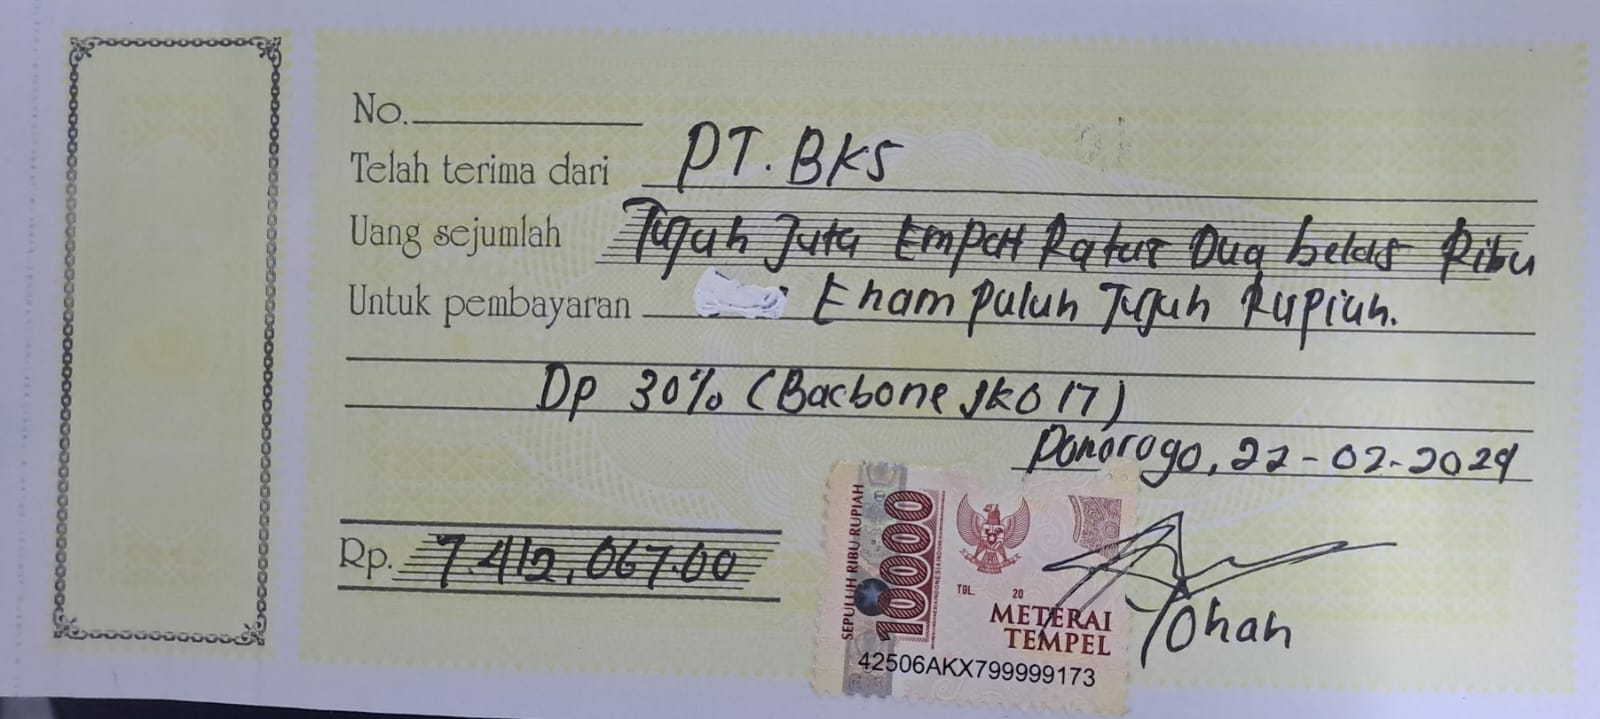 No.
Telah terima dari PT. BKS
Uang sejumlah Tujuh Juta Empat Ratus Dua belas Ribu
Untuk pembayaran Enam Puluh Tujuh Rupiah.
Dp 30% (Bacbone JKO 17)
Ponorogo, 22-02-2024
Rp. 7.412.067.00
SEPULUH RIBU RUPIAH
10000
TGL. 20
METERAI
TEMPEL
42506AKX799999173
Yohan